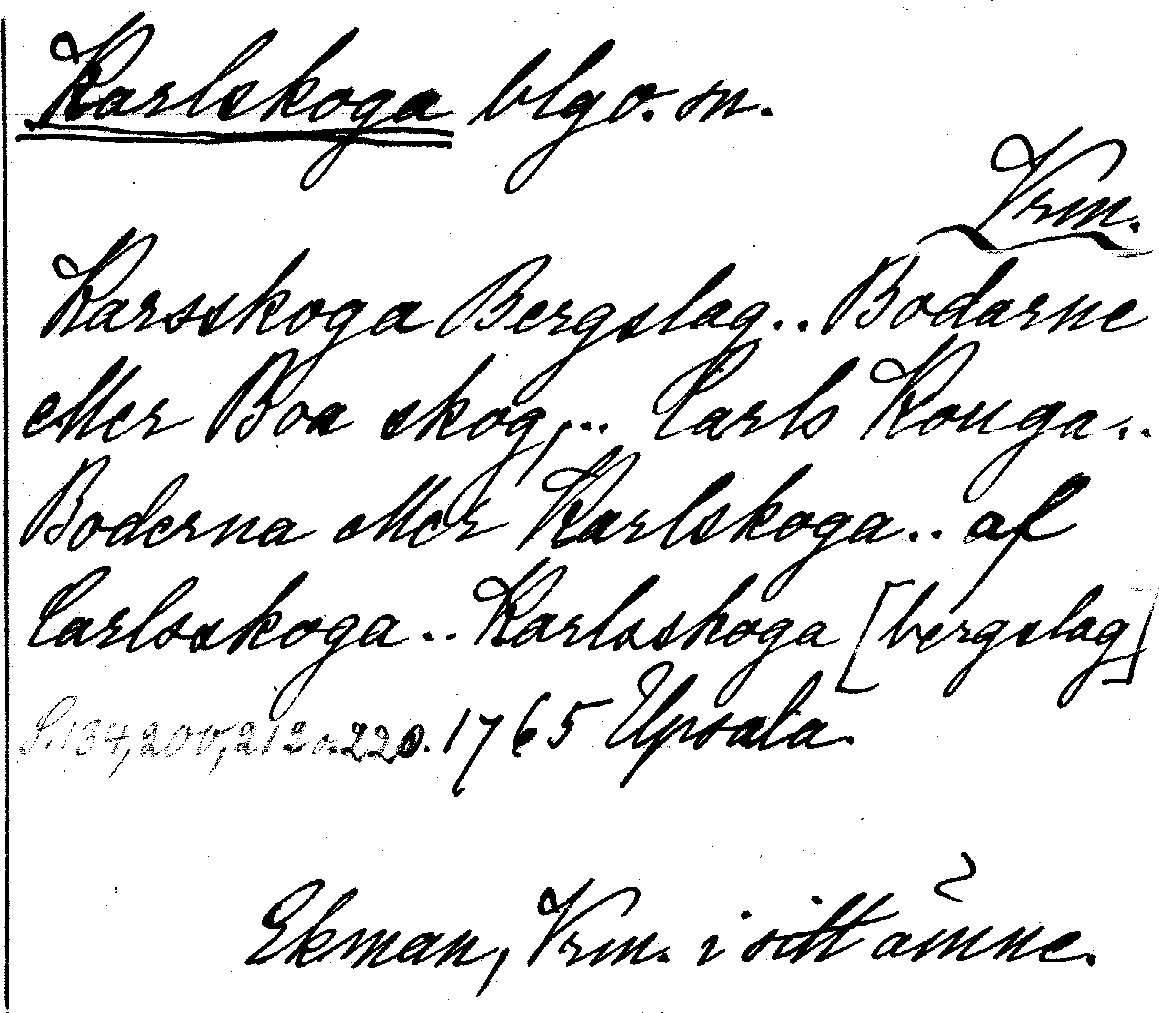 Karlskoga blgo. sn.
Vrm.
Karsskoga Bergslag.. Bodarne
eller Boa skog,.. Carls Kouga..
Boderna eller Karlskoga.. af
Carlsskoga.. Karlsskoga [bergslag]
S. 134, 200, 212 o. 220. 1765 Upsala.
Ekman, Vrm. i sitt ämne.